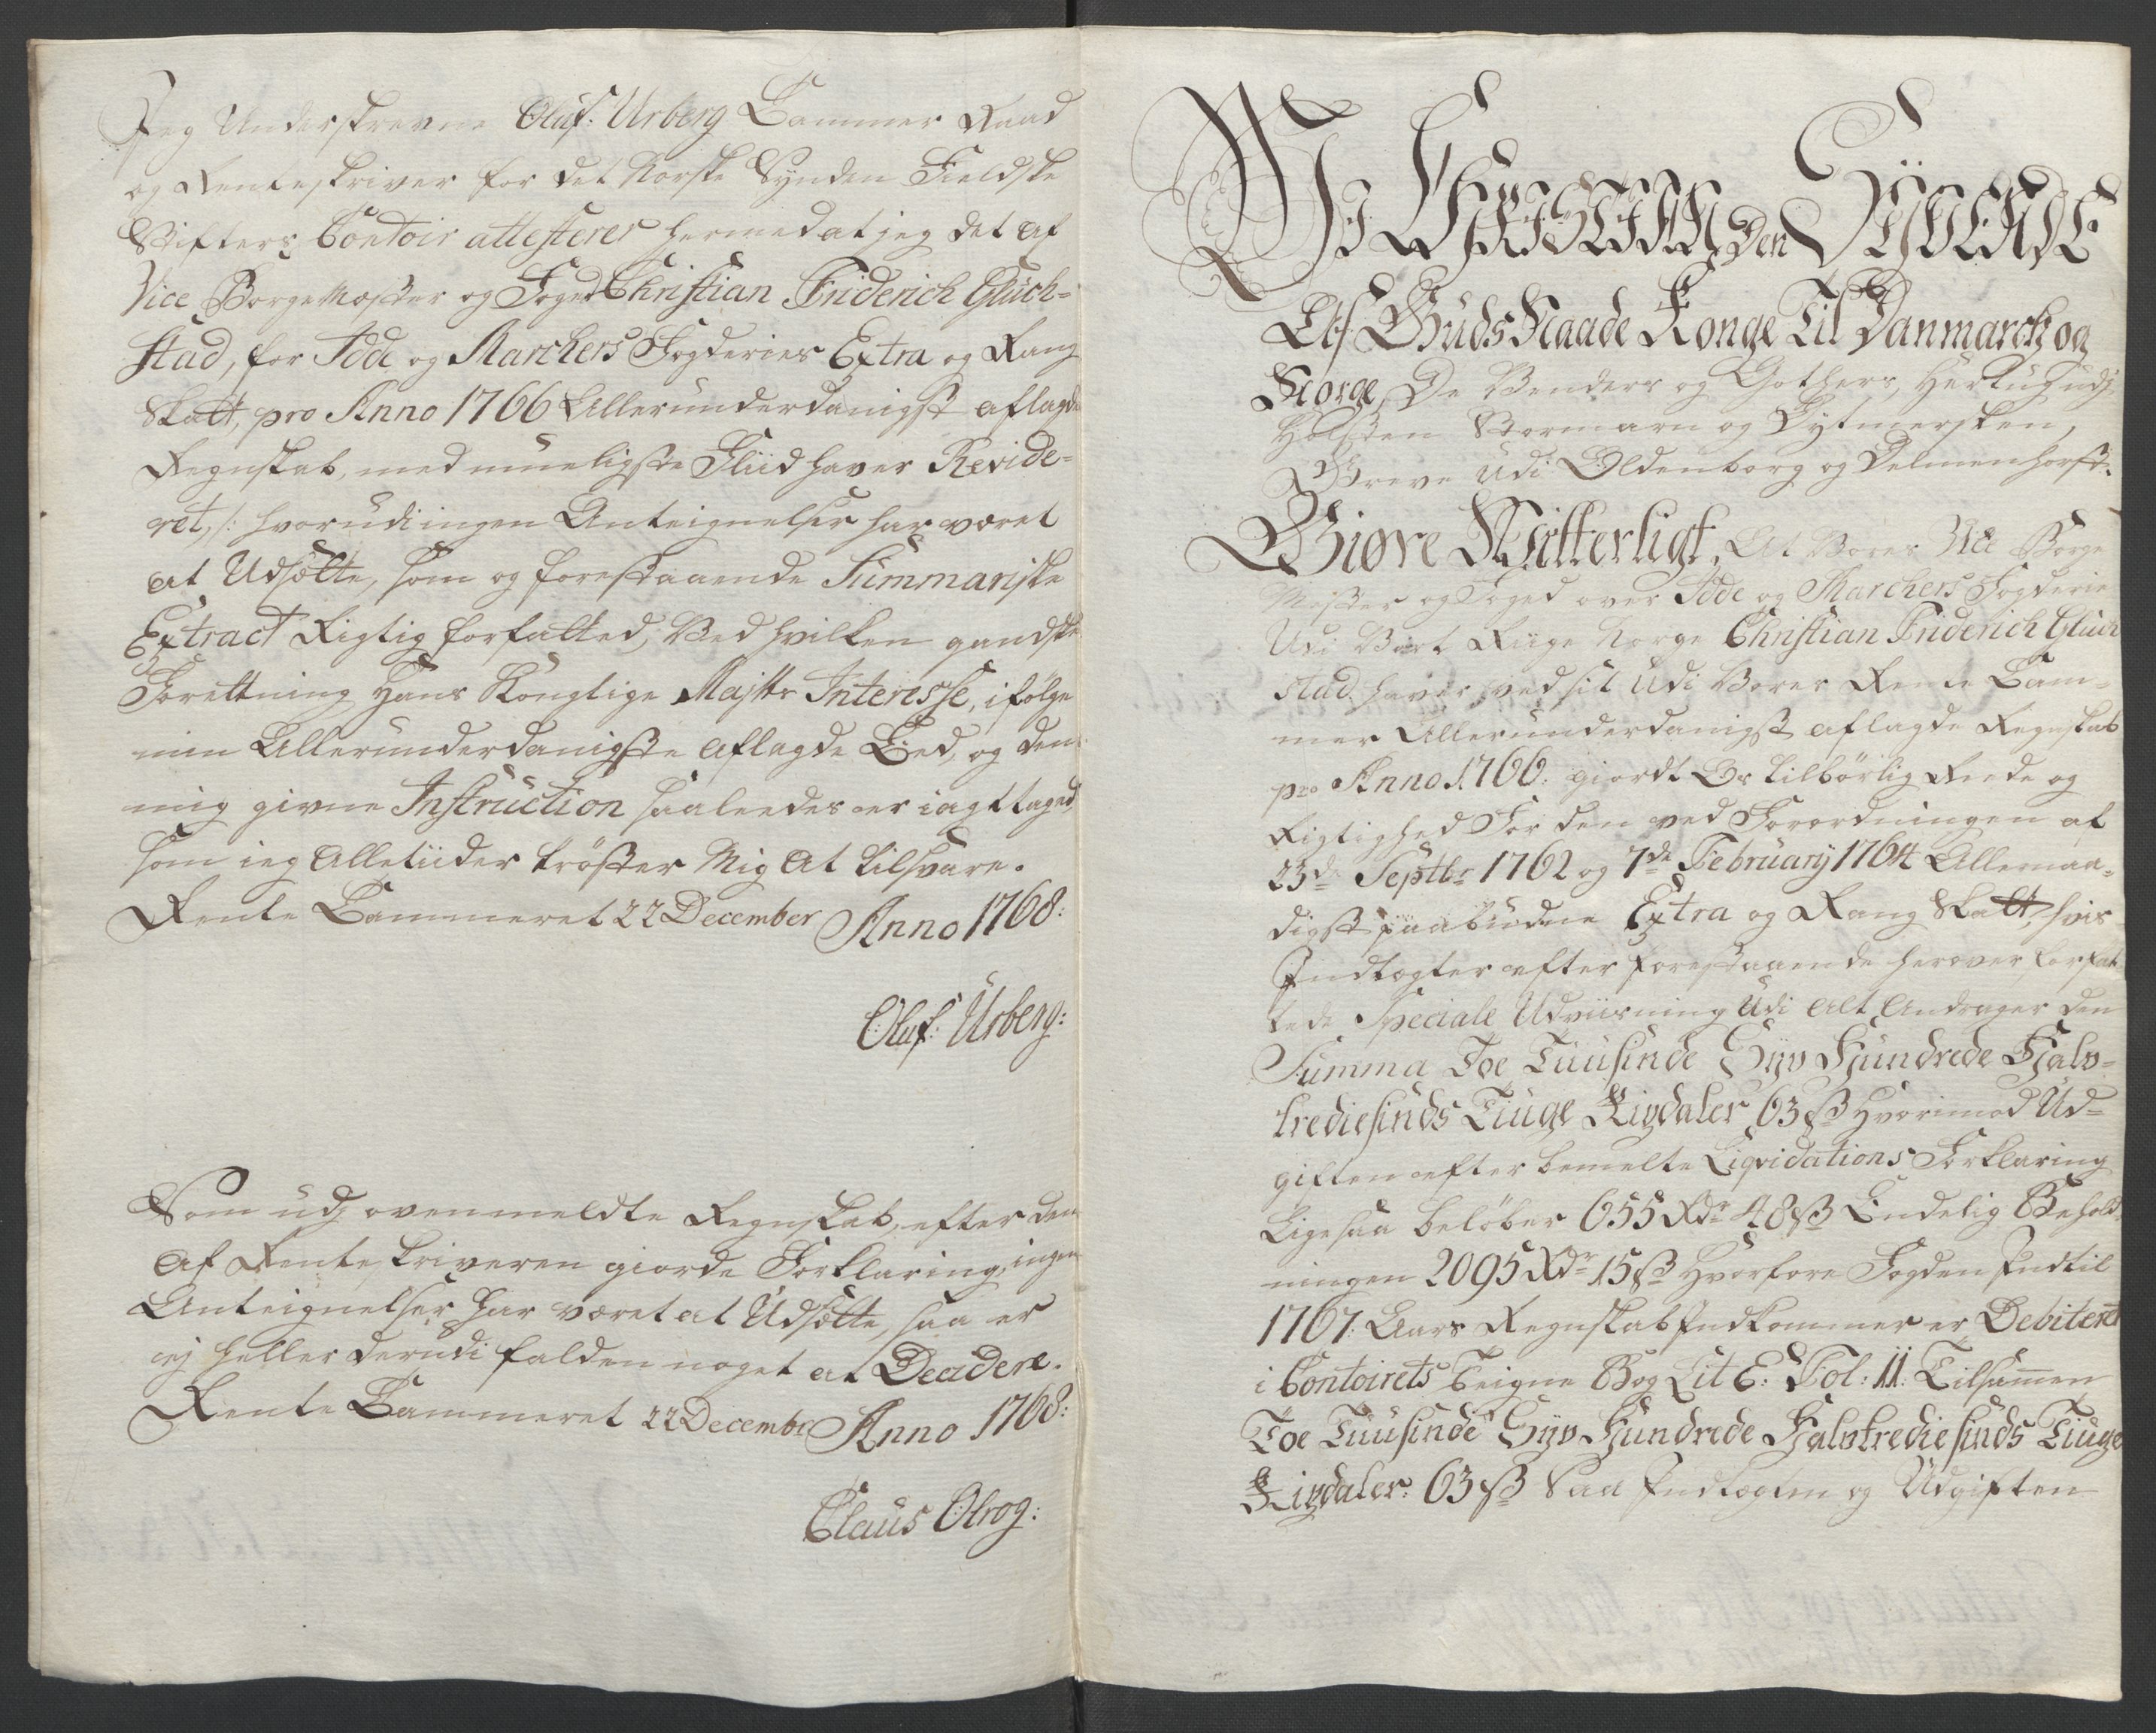 Jeg Underskrevne Oluf: Urberg Cammer Raad
og Renteskriver for det Norske Synden Fieldske
Stifters Contoir attesterer hermed at jeg det af
Vice Borgemester og Foged Christian Friderich Glück-
stad, for Idde og Marchers Fogderies Extra og Rang
Skatt, pro Anno 1766 Allerunderdanigst aflagde
Regnskab, med mueligste Fliid haver Revide-
ret, /: hvorudi ingen Anteignelser har været
at Udsætte, som og forestaaende Summariske
Extract Rigtig forfatted, Ved hvilken gandske
Forrettning Hans Kongelige Majtts Interesse, i følge
min Allerunderdanigste aflagde Eed, og den
mig givne Instruction saaledes er iagttaged
som ieg Alletiider trøster Mig at tilsvare.
Rente Cammeret 22 December Anno 1768:
Oluf: Urberg:
Som udj ovenmeldte Regnskab, efter den
af Renteskriveren giorde Forklaring, ingen
Anteignelser har været at Udsætte, saa er
ej heller derudi falden noget at Decidere.
Rente Cammeret 22 Decembr Anno 1768:
Claus Olrog:
Vi CHRISTIAN Den SYVENDE
Af Guds Naade Konge Til Danmarch og
Norge, De Venders og Gothers, Hertug udj
Holsten Stormarn og Dytmersken,
Greve udi Oldenborg og Delmenhorst.
Giøre Vitterligt, At Vores Vice Borge
Mester og Foged over Idde og Marchers Fogderie
Udi Vort Riige Norge Christian Friderich Glück
stad haver ved sit Udi Vores Rente Cam-
mer Allerunderdanigst aflagde Regnskab
pro Anno 1766: giordt Os tilbørlig Reede og
Rigtighed For den ved Forordningen af
23de Septbr 1762 og 7de February 1764 Allernaa-
digst paabudne Extra og Rang Skatt, hvis
Indtægter efter forestaaende herover forfat-
tede Speciale Udviisning Udi alt Andrager den
Summa Toe Tuusinde Syv Hundrede Halv-
trediesinds Tiuge Rixdaler 63 sß Hvorimod Ud-
giften efter bemelte Liqvidations Forklaring
Ligesaa beløber 655 Rdr 48 sß Endelig Behold-
ningen 2095 Rdr 15 sß Hvorfore Fogden Indtil
1767: Aars Regnskab Indkommer er Debiteret
i Contoirets Teigne Bog Lit E: Fol: 11: Tilsammen
Toe Tuusinde Syv Hundrede Halvtrediesinds Tiuge
Rixdaler: 63 sß Saa Indtægten og Udgiften